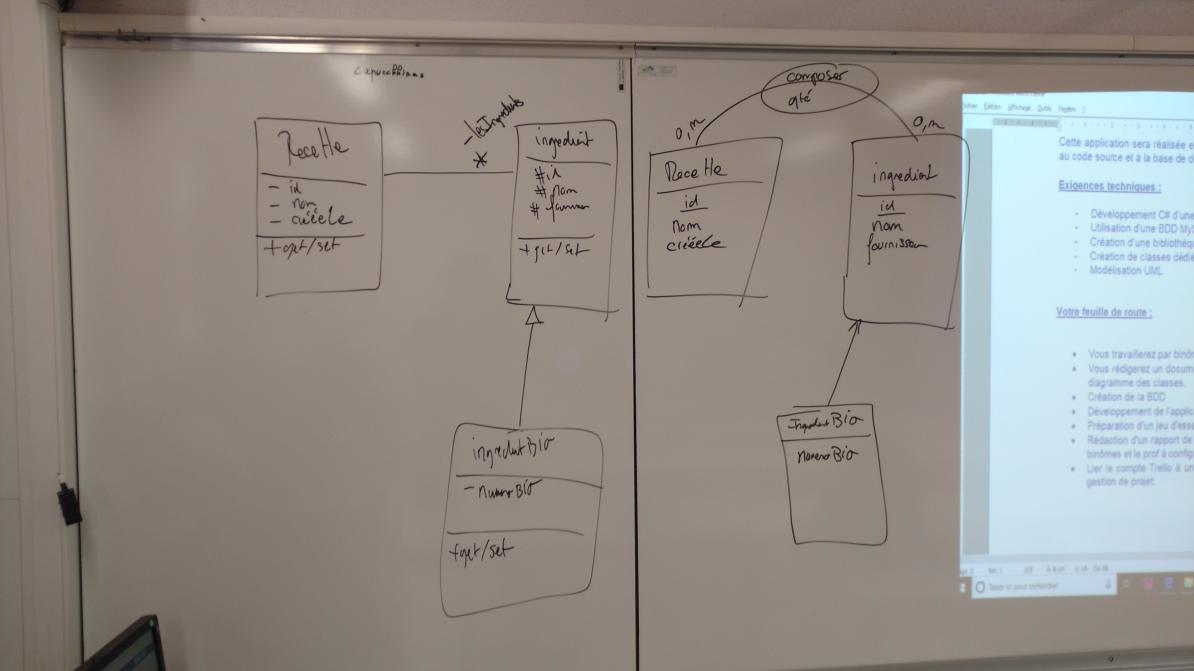 Recette
- id
- nom
- crééele
+get/set
- lesIngrédients
*
ingredient
#id
#nom
+ get/set
ingredientBio
- numeroBio
+get/set
composer
qté
0,n
0,n
Recette
id
nom
crééele
ingredient
id
nom
fournisseur
IngredientBio
numeroBio
Edition Affichage Outils Fenêtre
Cette application sera réalisée e
au code source et à la base de d
Exigences techniques :
- Développement C# d'une
- Utilisation d'une BDD MyS
- Création d'une bibliothèq
- Création de classes dédié
- Modélisation UML
Votre feuille de route :
• Vous travaillerez par binôm
• Vous rédigerez un docume
diagramme des classes.
• Création de la BDD
• Développement de l'applica
• Préparation d'un jeu d'essa
• Rédaction d'un rapport de
binômes et le prof à config
• Lier le compte Trello à un
gestion de projet.
Taper ici pour rechercher